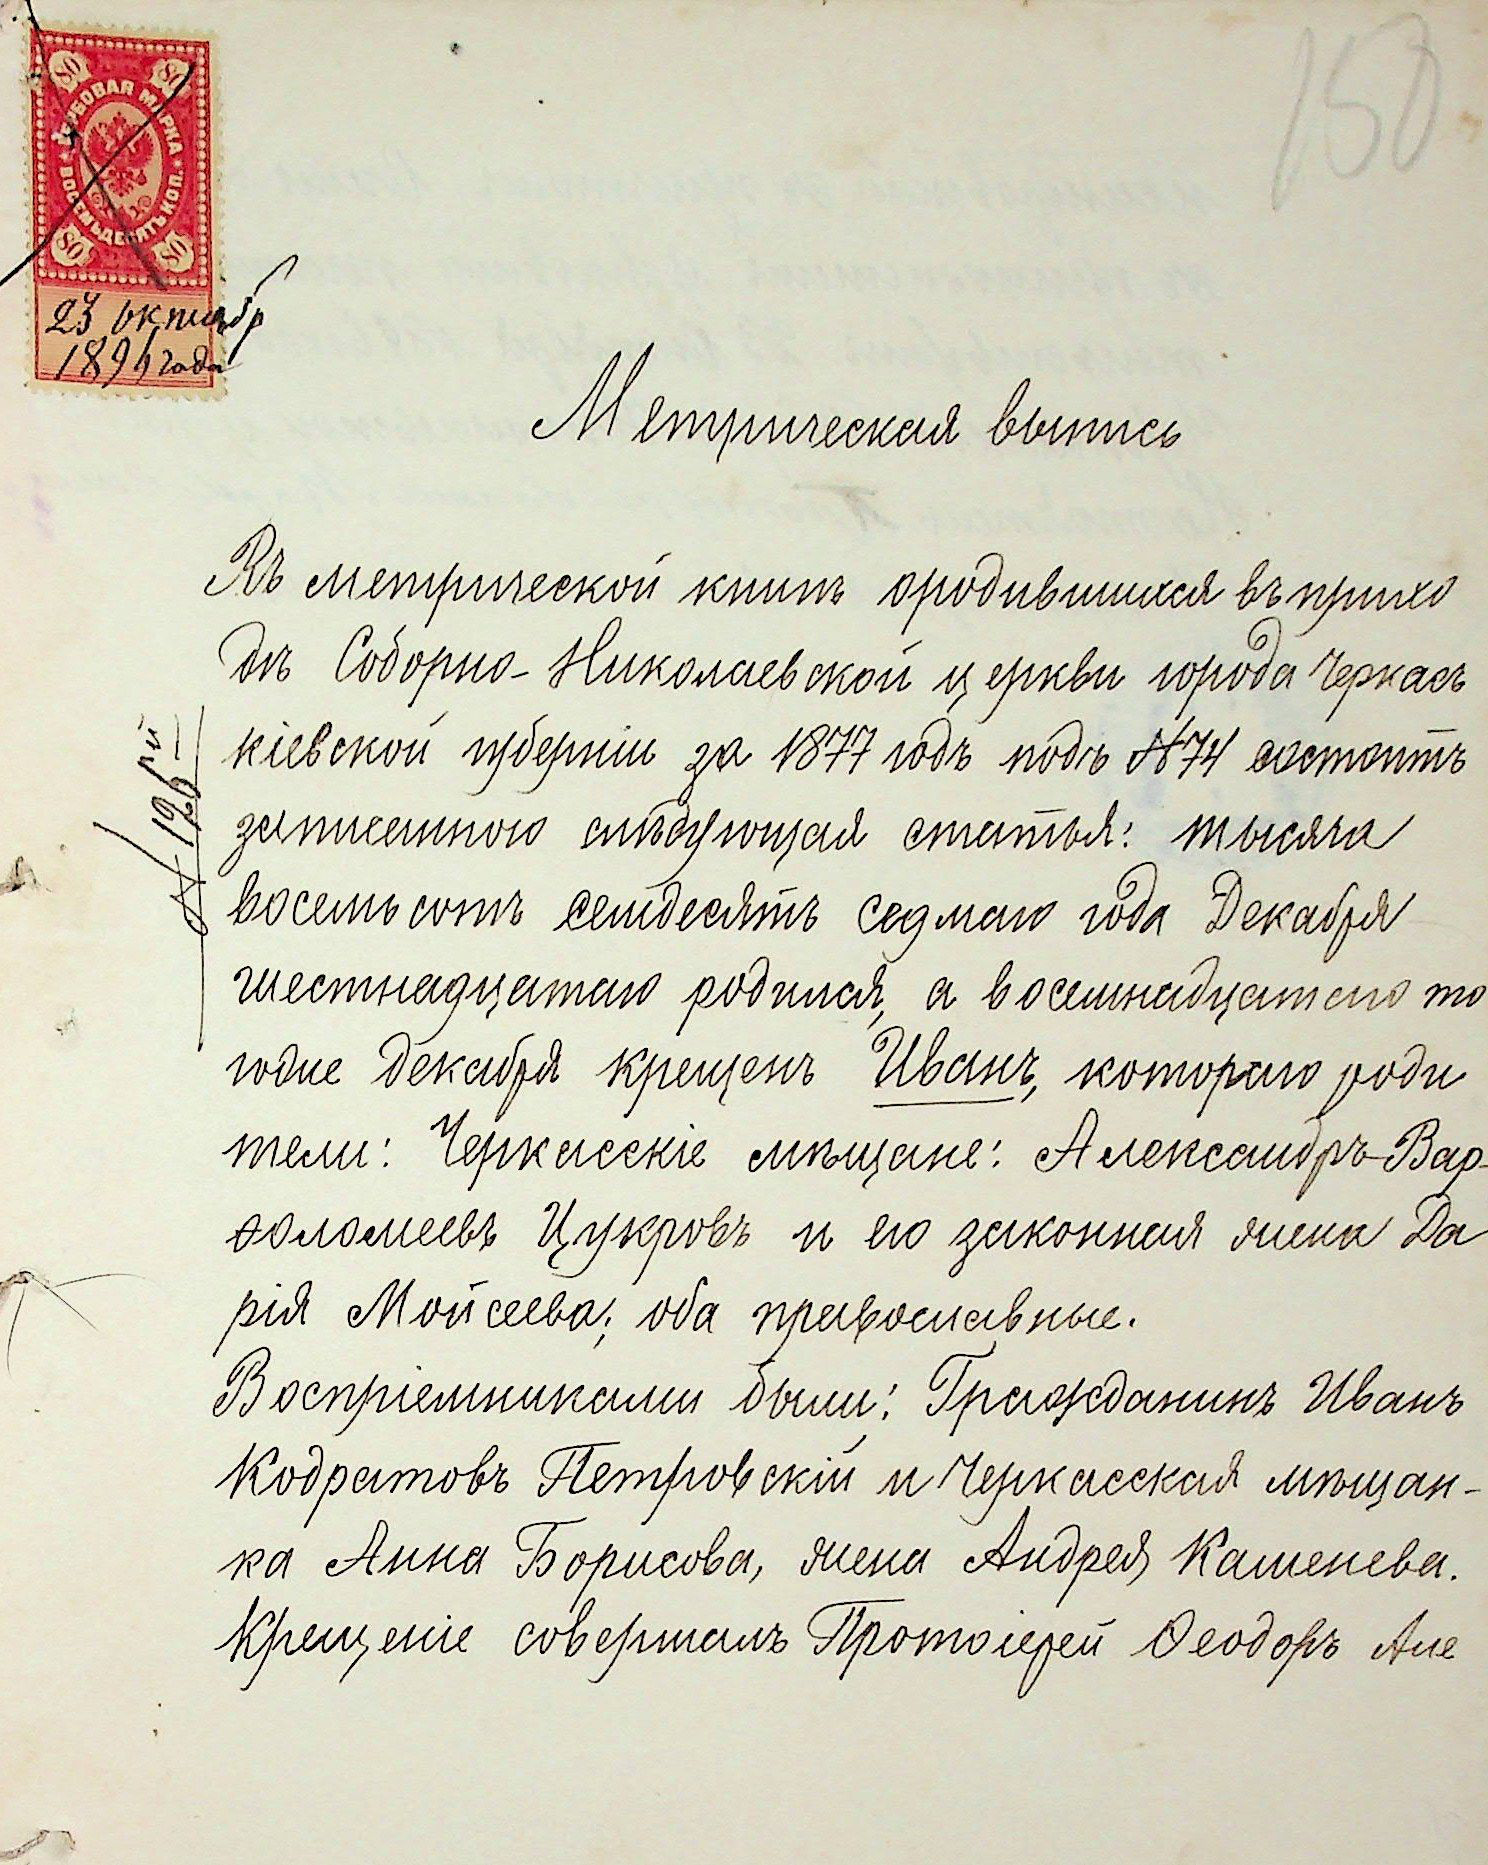 150
80 80
ГЕРБОВАЯ МАРКА
ВОСЕМЬДЕСЯТЪ КОП.
80 80
23 октябр
1896 года
Метрическая выпись
Въ метрической книгѣ ородившихся въ прихо
дѣ Соборно-Николаевской церкви города Черкасъ
кіевской губерніи за 1877 годъ подъ №74 состоитъ
записанною слѣдующая статья: тысяча
восемьсотъ семдесятъ седмаго года Декабря
шестнадцатаго родился, а восемнадцатаго то
гоже декабря крещенъ Иванъ, котораго роди
тели: Черкасскіе мѣщане: Александръ Вар-
ѳоломеевъ Цукровъ и его законная жена Да
рія Мойсеева; оба православные.
Воспріемниками были: Гражданинъ Иванъ
Кодратовъ Петровскій и Черкасская мѣщан-
ка Анна Борисова, жена Андрея Каменева.
Крещеніе совершалъ Протоіерей Ѳеодоръ Але
№ 126 рй